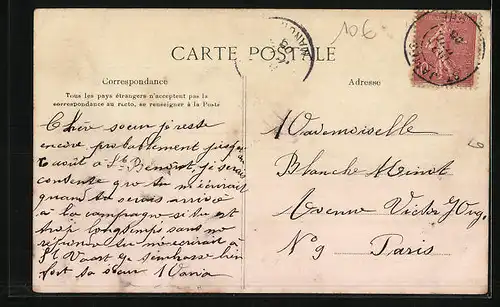 106
CARTE POSTALE
Correspondance
Tous les pays étrangers n'acceptent pas la
correspondance au recto, se renseigner à la Poste
Adresse
Chère soeur je reste
encore probablement jusqu'au
août à St je serais
contente que tu m'écrivait
quand tu serais arrivée
à la campagne si tu est
trop longtemps sans me
réponse tu m'écrirait à
St Vaast je t'embrasse bien
fort ta soeur Maria
Mademoiselle
Blanche Minot
Avenue Victor Hug.
N° 9 Paris